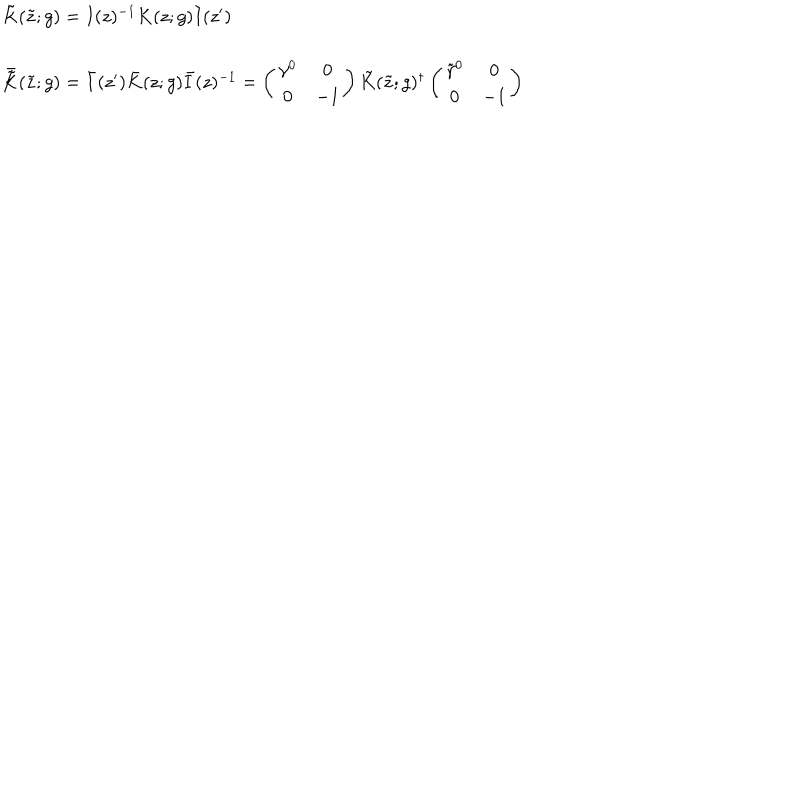 K̃(z̃; g) = I(z)⁻¹K(z; g)I(z′)
K̃̄(z̃; g) = Ī(z′)K̄(z; g)Ī(z)⁻¹ = ( γ⁰ 0 ; 0 −1 ) K̃(z̃; g)† ( γ̃⁰ 0 ; 0 −1 )